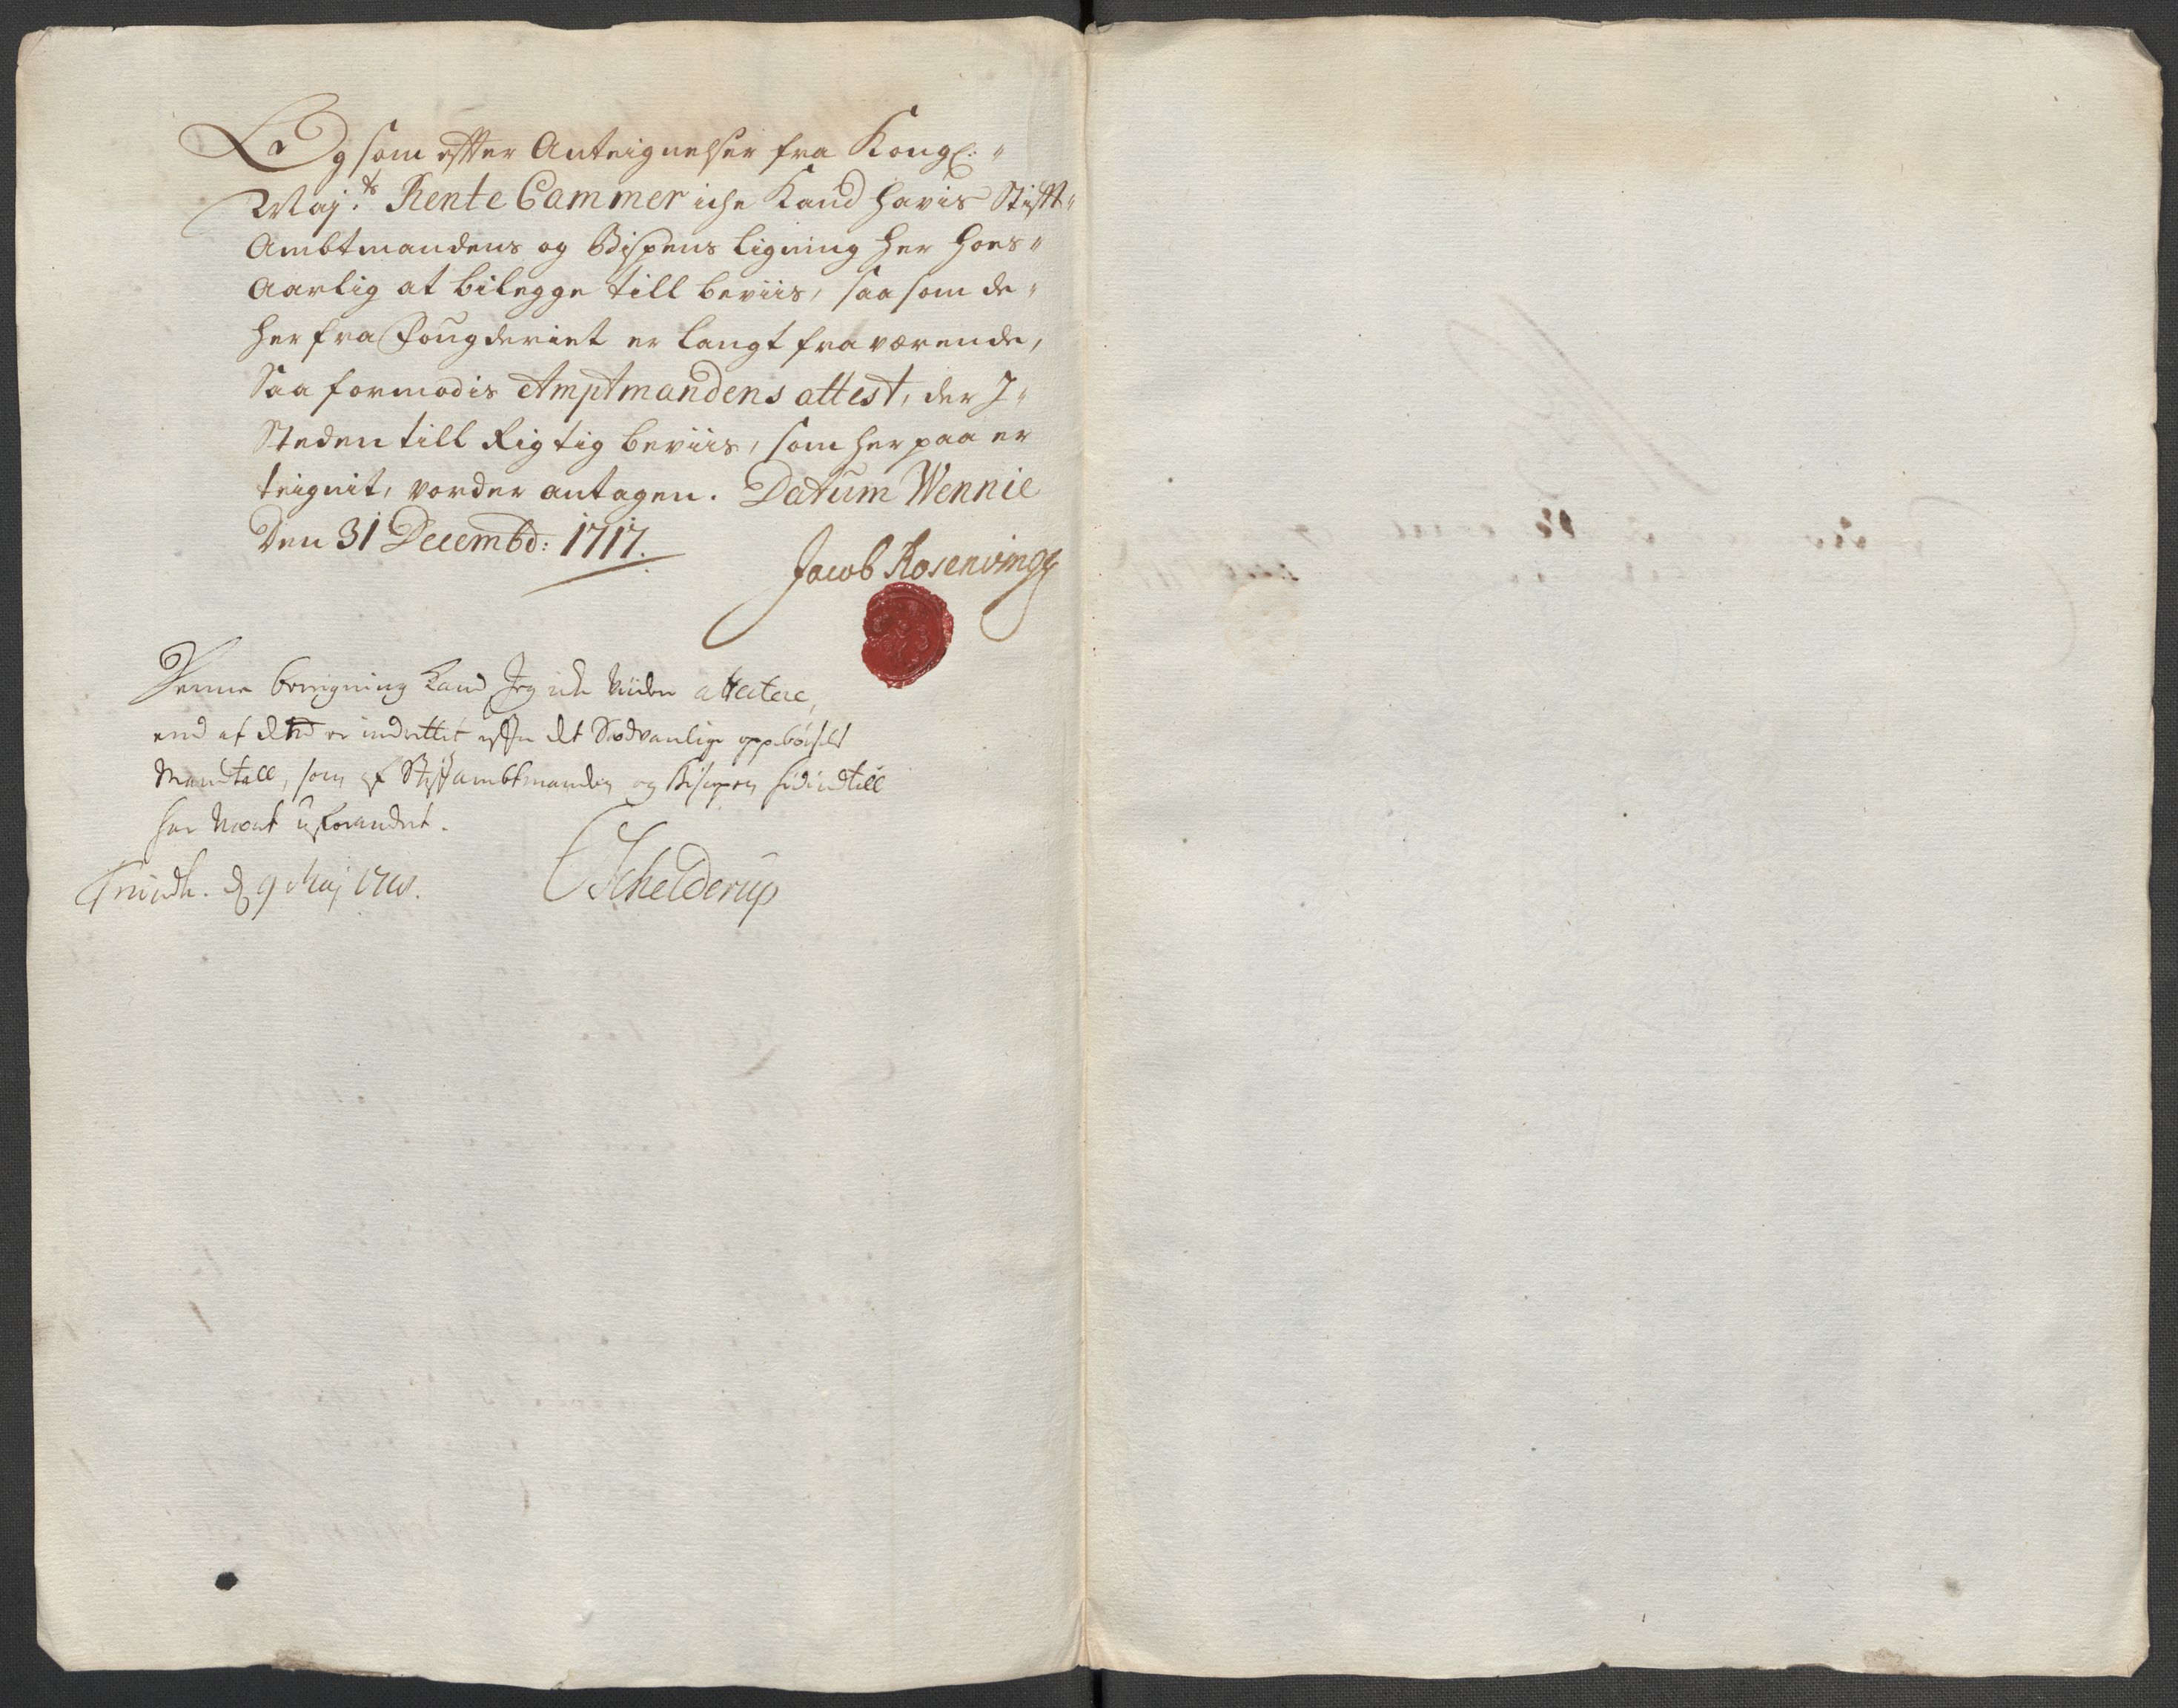 Og som effter Anteignelser fra Kongl:
Maj:ts Rente Cammer iche Kand havis Stifft-
Ambtmandens og Bispens ligning her hoes
Aarlig at bilegge till beviis, saasom de
her fra Fougderiet er langt fraværende,
Saa formodis Amptmandens attest, der J
Steden till Rigtig beviis, som her paa er
teignit, vorder antagen. Datum Wennie
Den 31 Decembd: 1717.
Jacob Rosenvinge
Denne beregning Kand Jeg ich viidere attestere,
end at dend er indrettet effter det Sædvanlige oppebørsels
Mandtall, som af Stifftambtmanden og Bispen hidindtill
har været uforandret.
Trundh. d 9 Maj 1718.
Schelderup